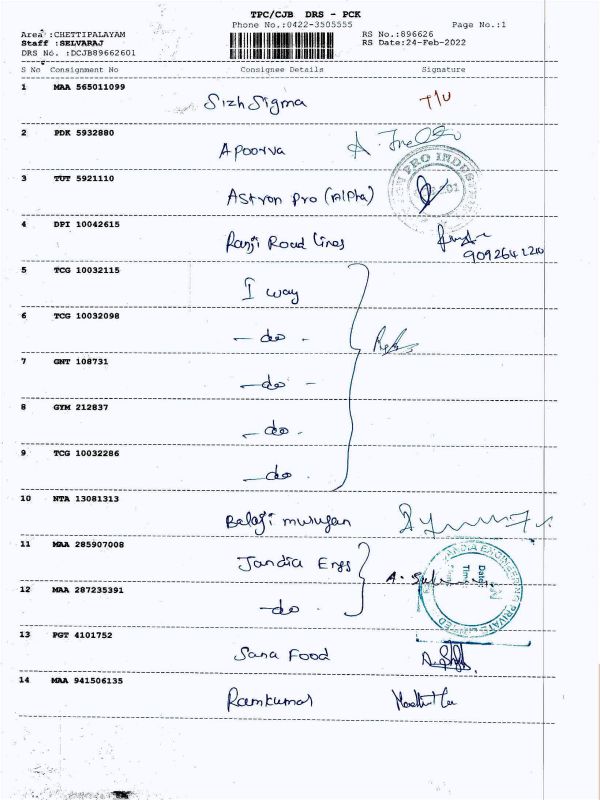 TPC/CJB DRS - PCK
Phone No.:0422-3505555 Page No.:1
Area :CHETTIPALAYAM RS No.:896626
Staff :SELVARAJ RS Date:24-Feb-2022
DRS No. :DCJB89662601
S No Consignment No Consignee Details Signature
1 MAA 565011099 SizhSigma T/U
2 PDK 5932880 Apoorva
3 TUT 5921110 Astron Pro (Alpha)
4 DPI 10042615 Ranji Road lines
9092641210
5 TCG 10032115 I way
6 TCG 10032098 - do -
7 GNT 108731 - do -
8 GYM 212837 - do -
9 TCG 10032286 - do -
10 NTA 13081313 Balaji murugan
11 MAA 285907008 Jandia Engs
12 MAA 287235391 - do -
13 PGT 4101752 Sana Food
14 MAA 941506135 Ramkumar